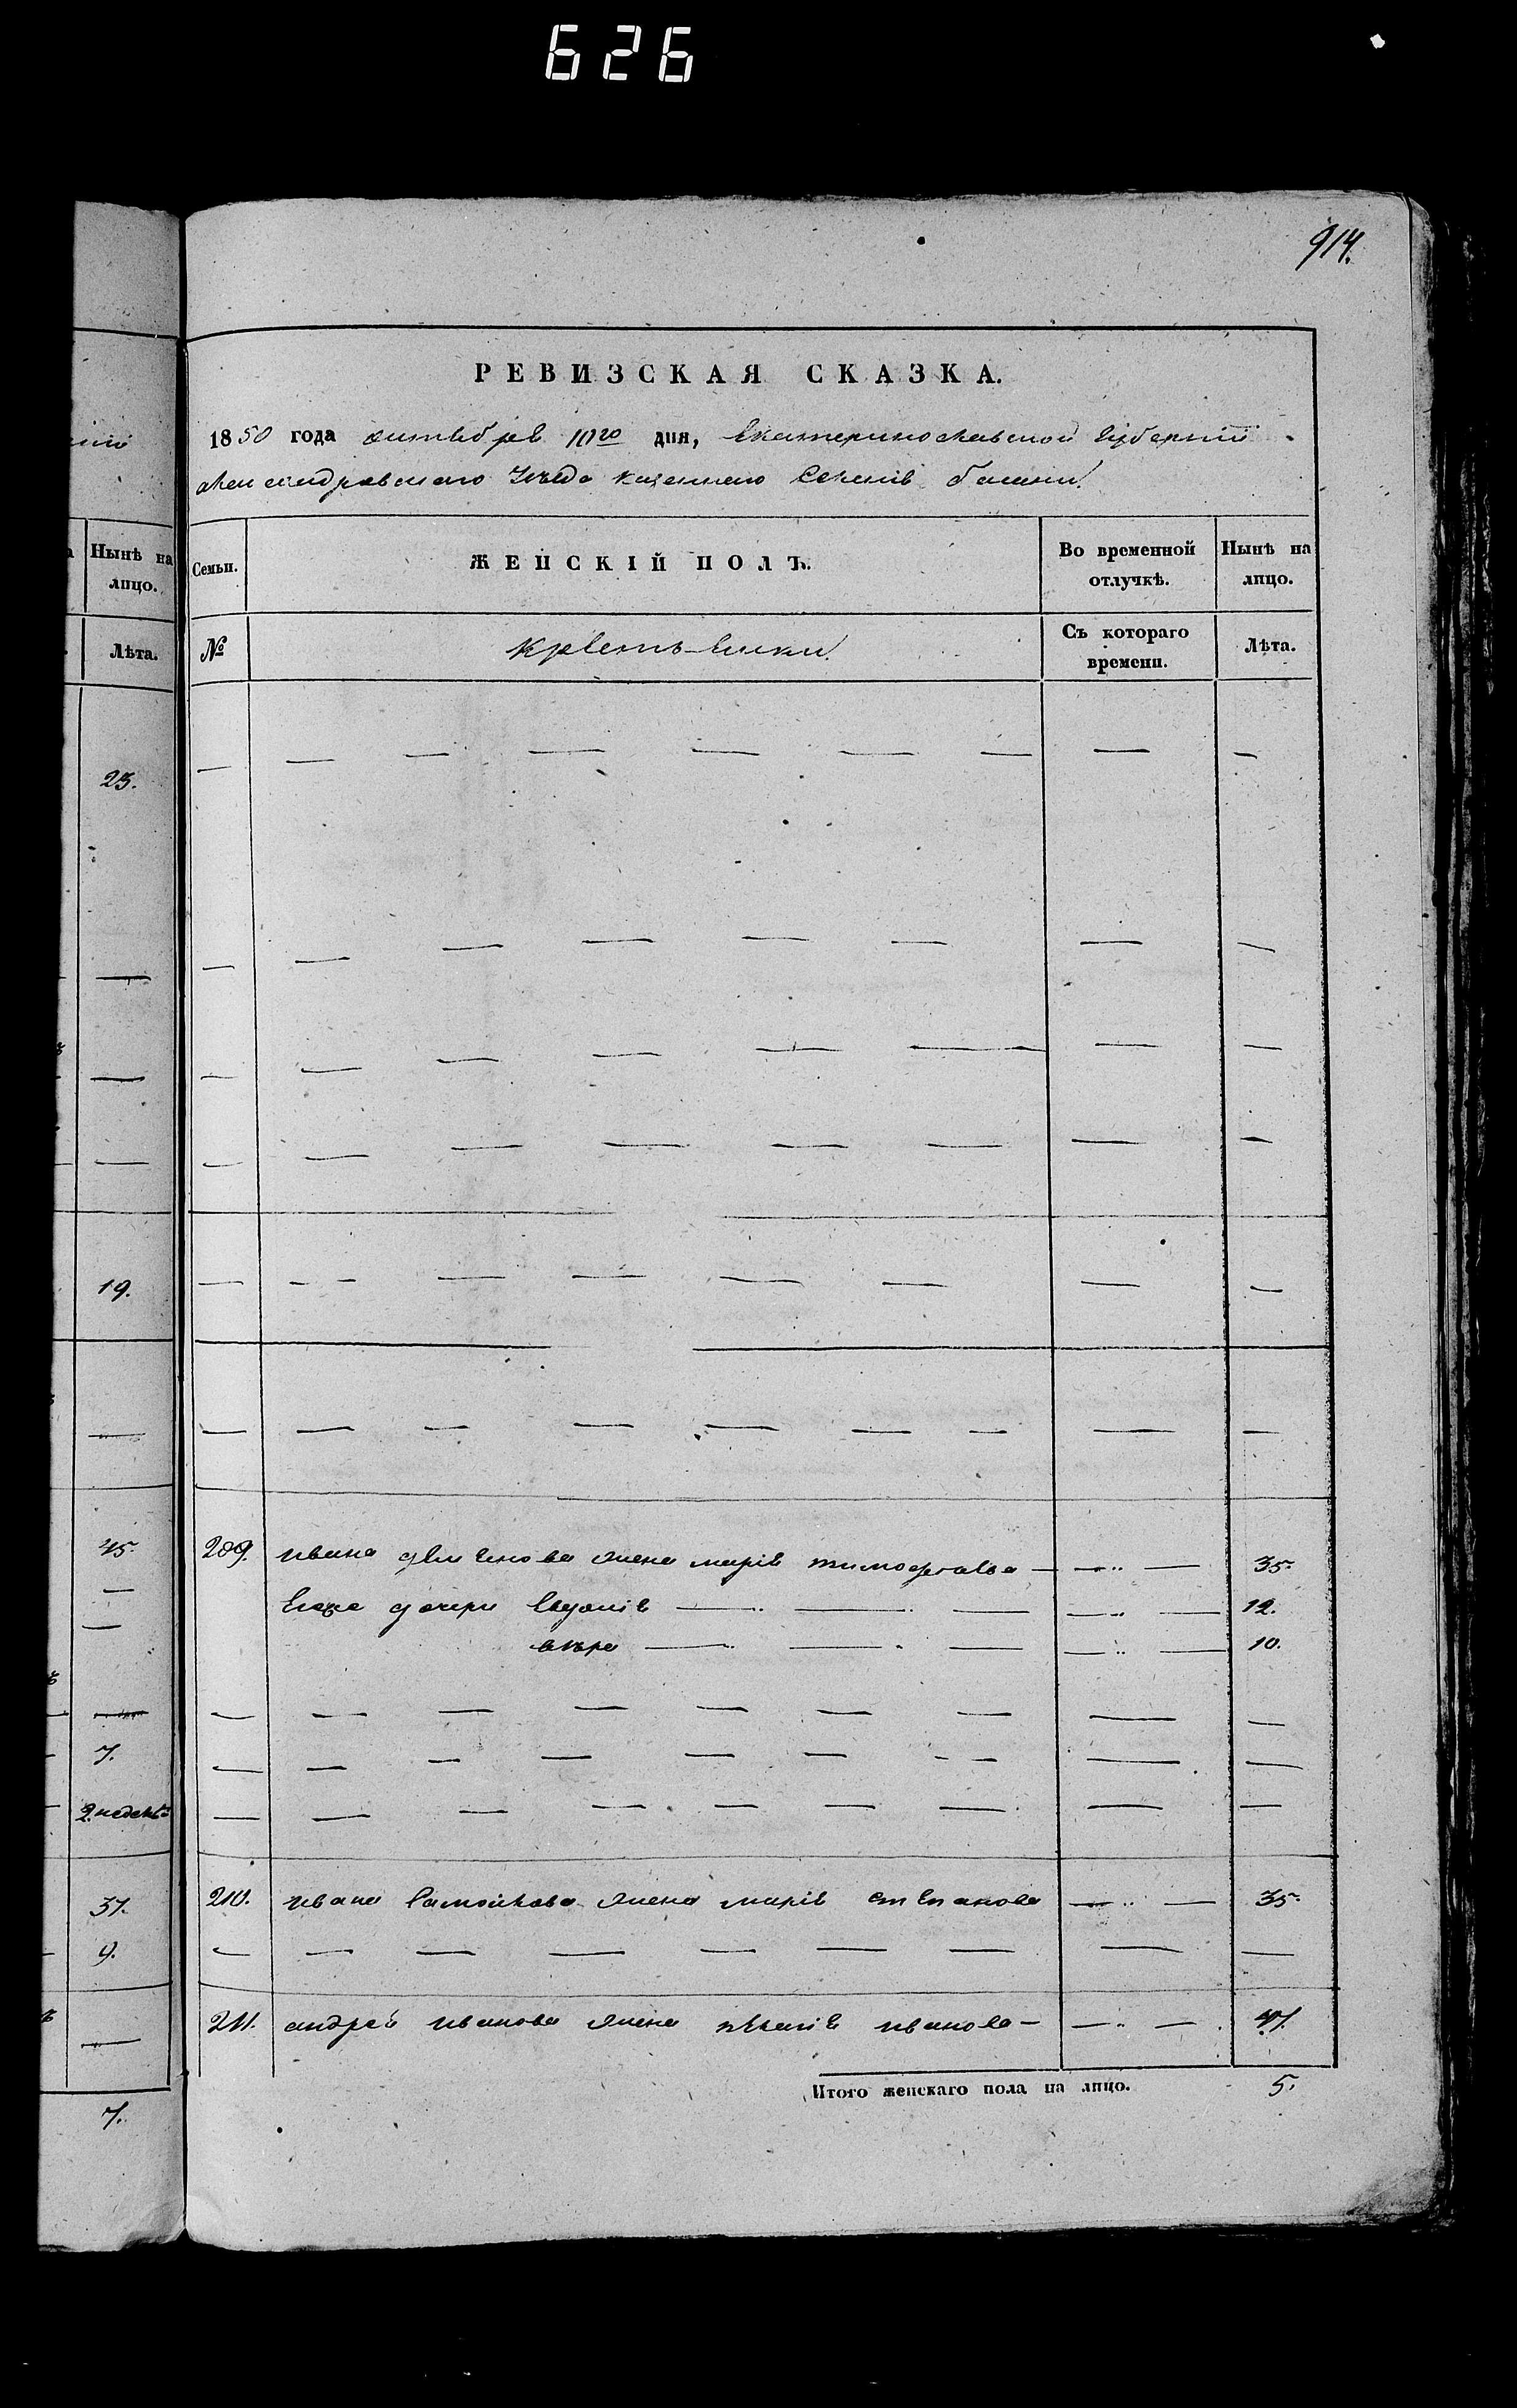 626
914.
РЕВИЗСКАЯ СКАЗКА.
1850 года октебря 10го дня, Екатеринославской Губернии
Александравскаго Уезда казеннаго Селенія Балки
Нынѣ на лицо.
Лѣта.
Семьи.
ЖЕНСКІЙ ПОЛЪ.
Во временной отлучкѣ.
Нынѣ на лицо.
№
Съ котораго времени.
Лѣта.
23.
19.
45.
209. ивана жена марія тимофеева — — 35.
Егоже дочери Евдокія — — — — 12.
вѣра — — — — 10.
7.
2 недель
210. ивана Самойлова жена марія степанова — — 35.
37.
9.
211. андрея иванова жена пелагія иванова — — 47.
Итого женскаго пола на лицо. 5.
7.